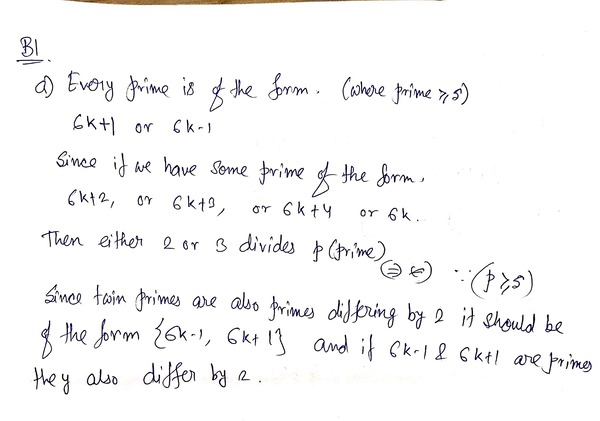 B1.
a) Every prime is of the form. (where prime ⩾ 5)
6k+1 or 6k-1
Since if we have some prime of the form,
6k+2, or 6k+3, or 6k+4 or 6k.
Then either 2 or 3 divides p (prime)
(⇒⇐) ∵ (p ⩾ 5)
Since twin primes are also primes differing by 2 it should be
of the form {6k-1, 6k+1} and if 6k-1 & 6k+1 are primes
they also differ by 2.